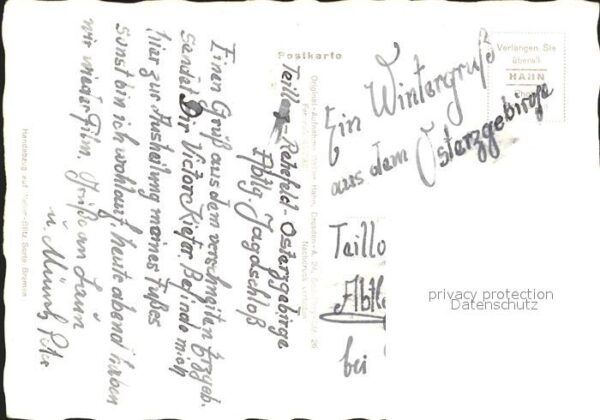 Postkarte
Verlangen Sie
überall
HAHN
Ein Wintergruß
aus dem Osterzgebirge
Teillo
Abtl
bei
Rehefeld-Osterzgebirge
Abtlg Jagdschloß
Einen Gruß aus dem verschneiten Erzgeb.
sendet Dir Victor Kiefer. Befinde mich
hier zur Ausheilung meines Fußes
sonst bin ich wohlauf, heute abend haben
wir wieder Film. Grüße an
u.
Original-Aufnahme Walter Hahn, Dresden-A. 24,
Nachdruck verboten
Handabzug auf
privacy protection
Datenschutz